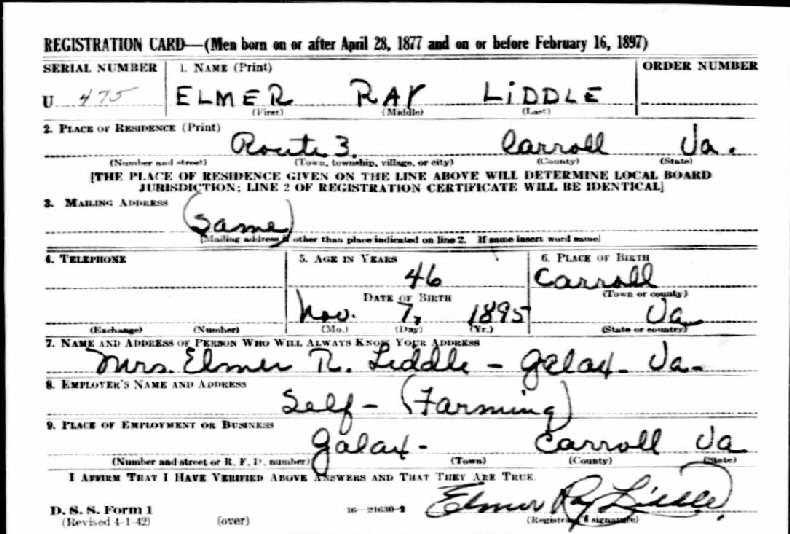 REGISTRATION CARD—(Men born on or after April 28, 1877 and on or before February 16, 1897)
SERIAL NUMBER 1. NAME (Print) ORDER NUMBER
U 475 ELMER RAY LIDDLE
(First) (Middle) (Last)
2. PLACE OF RESIDENCE (Print)
Route 3. Carroll Va.
(Number and street) (Town, township, village, or city) (County) (State)
[THE PLACE OF RESIDENCE GIVEN ON THE LINE ABOVE WILL DETERMINE LOCAL BOARD
JURISDICTION; LINE 2 OF REGISTRATION CERTIFICATE WILL BE IDENTICAL]
3. MAILING ADDRESS
(Same)
[Mailing address if other than place indicated on line 2. If same insert word same]
4. TELEPHONE 5. AGE IN YEARS 6. PLACE OF BIRTH
46 Carroll
DATE OF BIRTH (Town or county)
Nov. 7, 1895 Va
(Exchange) (Number) (Mo.) (Day) (Yr.) (State or country)
7. NAME AND ADDRESS OF PERSON WHO WILL ALWAYS KNOW YOUR ADDRESS
Mrs. Elmer R. Liddle - Galax - Va-
8. EMPLOYER'S NAME AND ADDRESS
Self- (Farming)
9. PLACE OF EMPLOYMENT OR BUSINESS
Galax- Carroll Va
(Number and street or R. F. D. number) (Town) (County) (State)
I AFFIRM THAT I HAVE VERIFIED ABOVE ANSWERS AND THAT THEY ARE TRUE.
Elmer Ray Liddle
D. S. S. Form 1 16—21630-2 (Registrant's signature)
(Revised 4-1-42) (over)